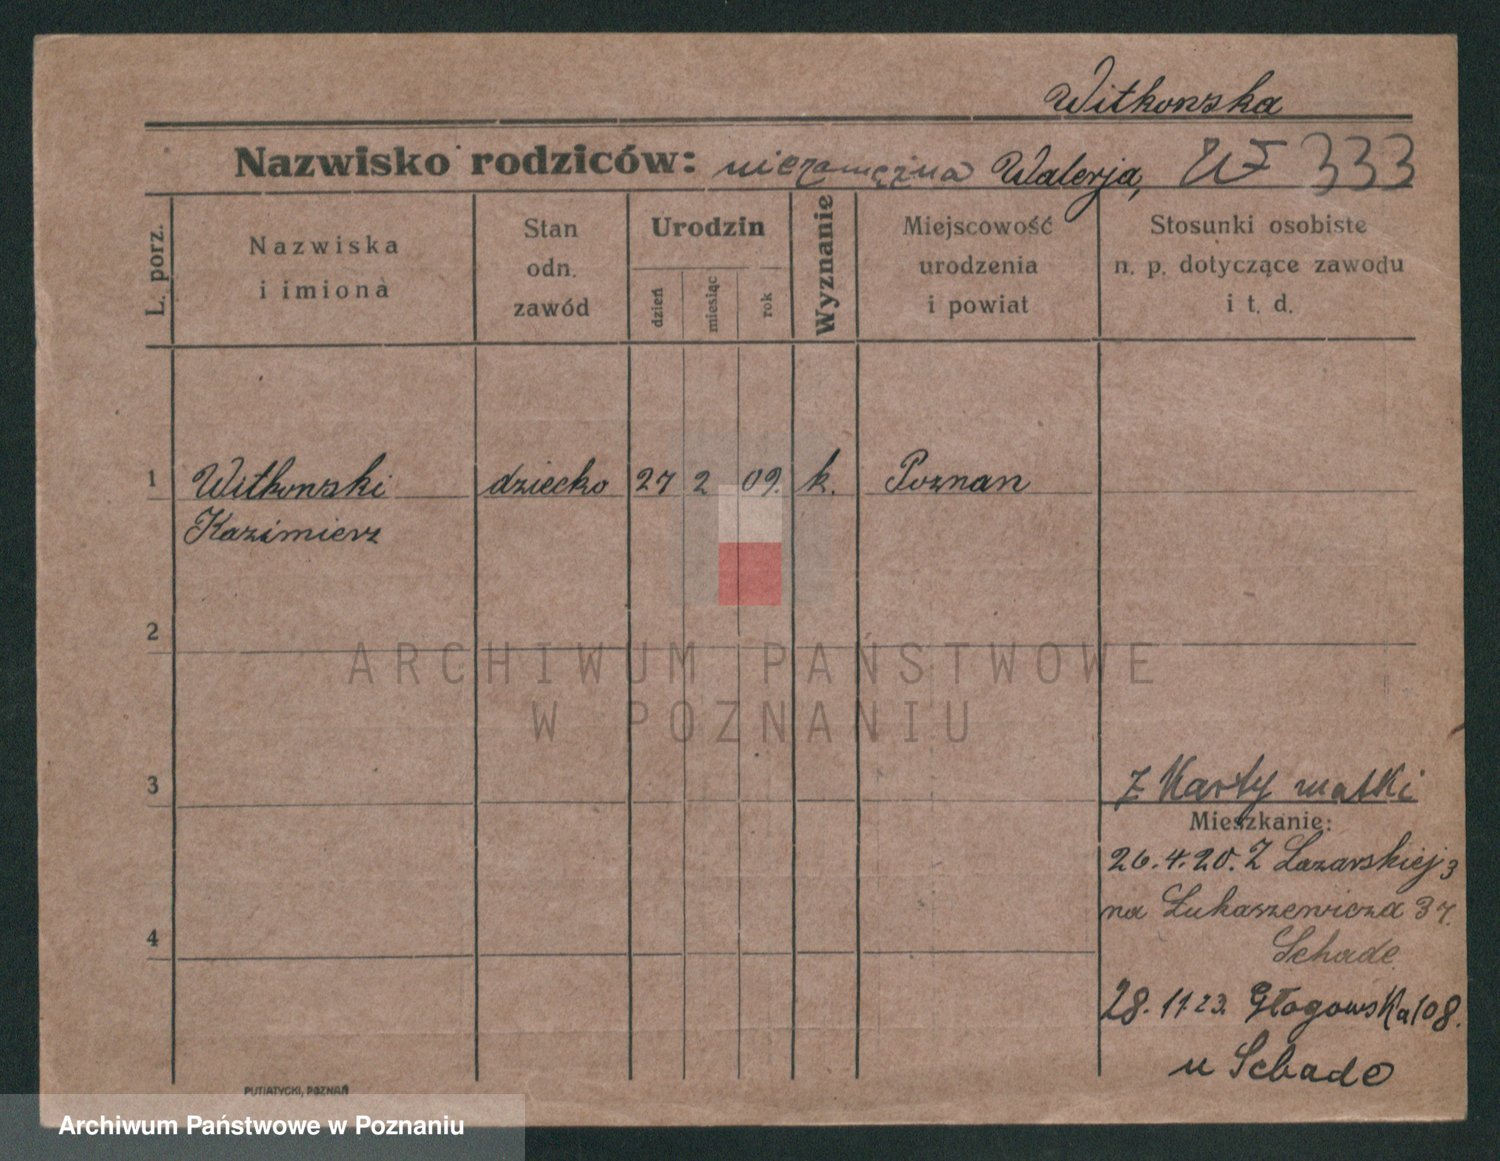 Witkowska
Nazwisko rodziców: niezamężna Walerja, 333
L. porz.
Nazwiska
i imiona
Stan
odn.
zawód
Urodzin
dzień
miesiąc
rok
Wyznanie
Miejscowość
urodzenia
i powiat
Stosunki osobiste
n. p. dotyczące zawodu
i t. d.
1 Witkowski dziecko 27 2 09. k. Poznan
Kazimierz
2
ARCHIWUM PAŃSTWOWE
W POZNANIU
3
z Karty matki
Mieszkanie:
26.4.20. Z Lazarskiej 3
na Łukaszewicza 37.
4
Schade
28. 11 23. Głogowska 108.
u Schade
PUTIATYCKI, POZNAŃ
Archiwum Państwowe w Poznaniu